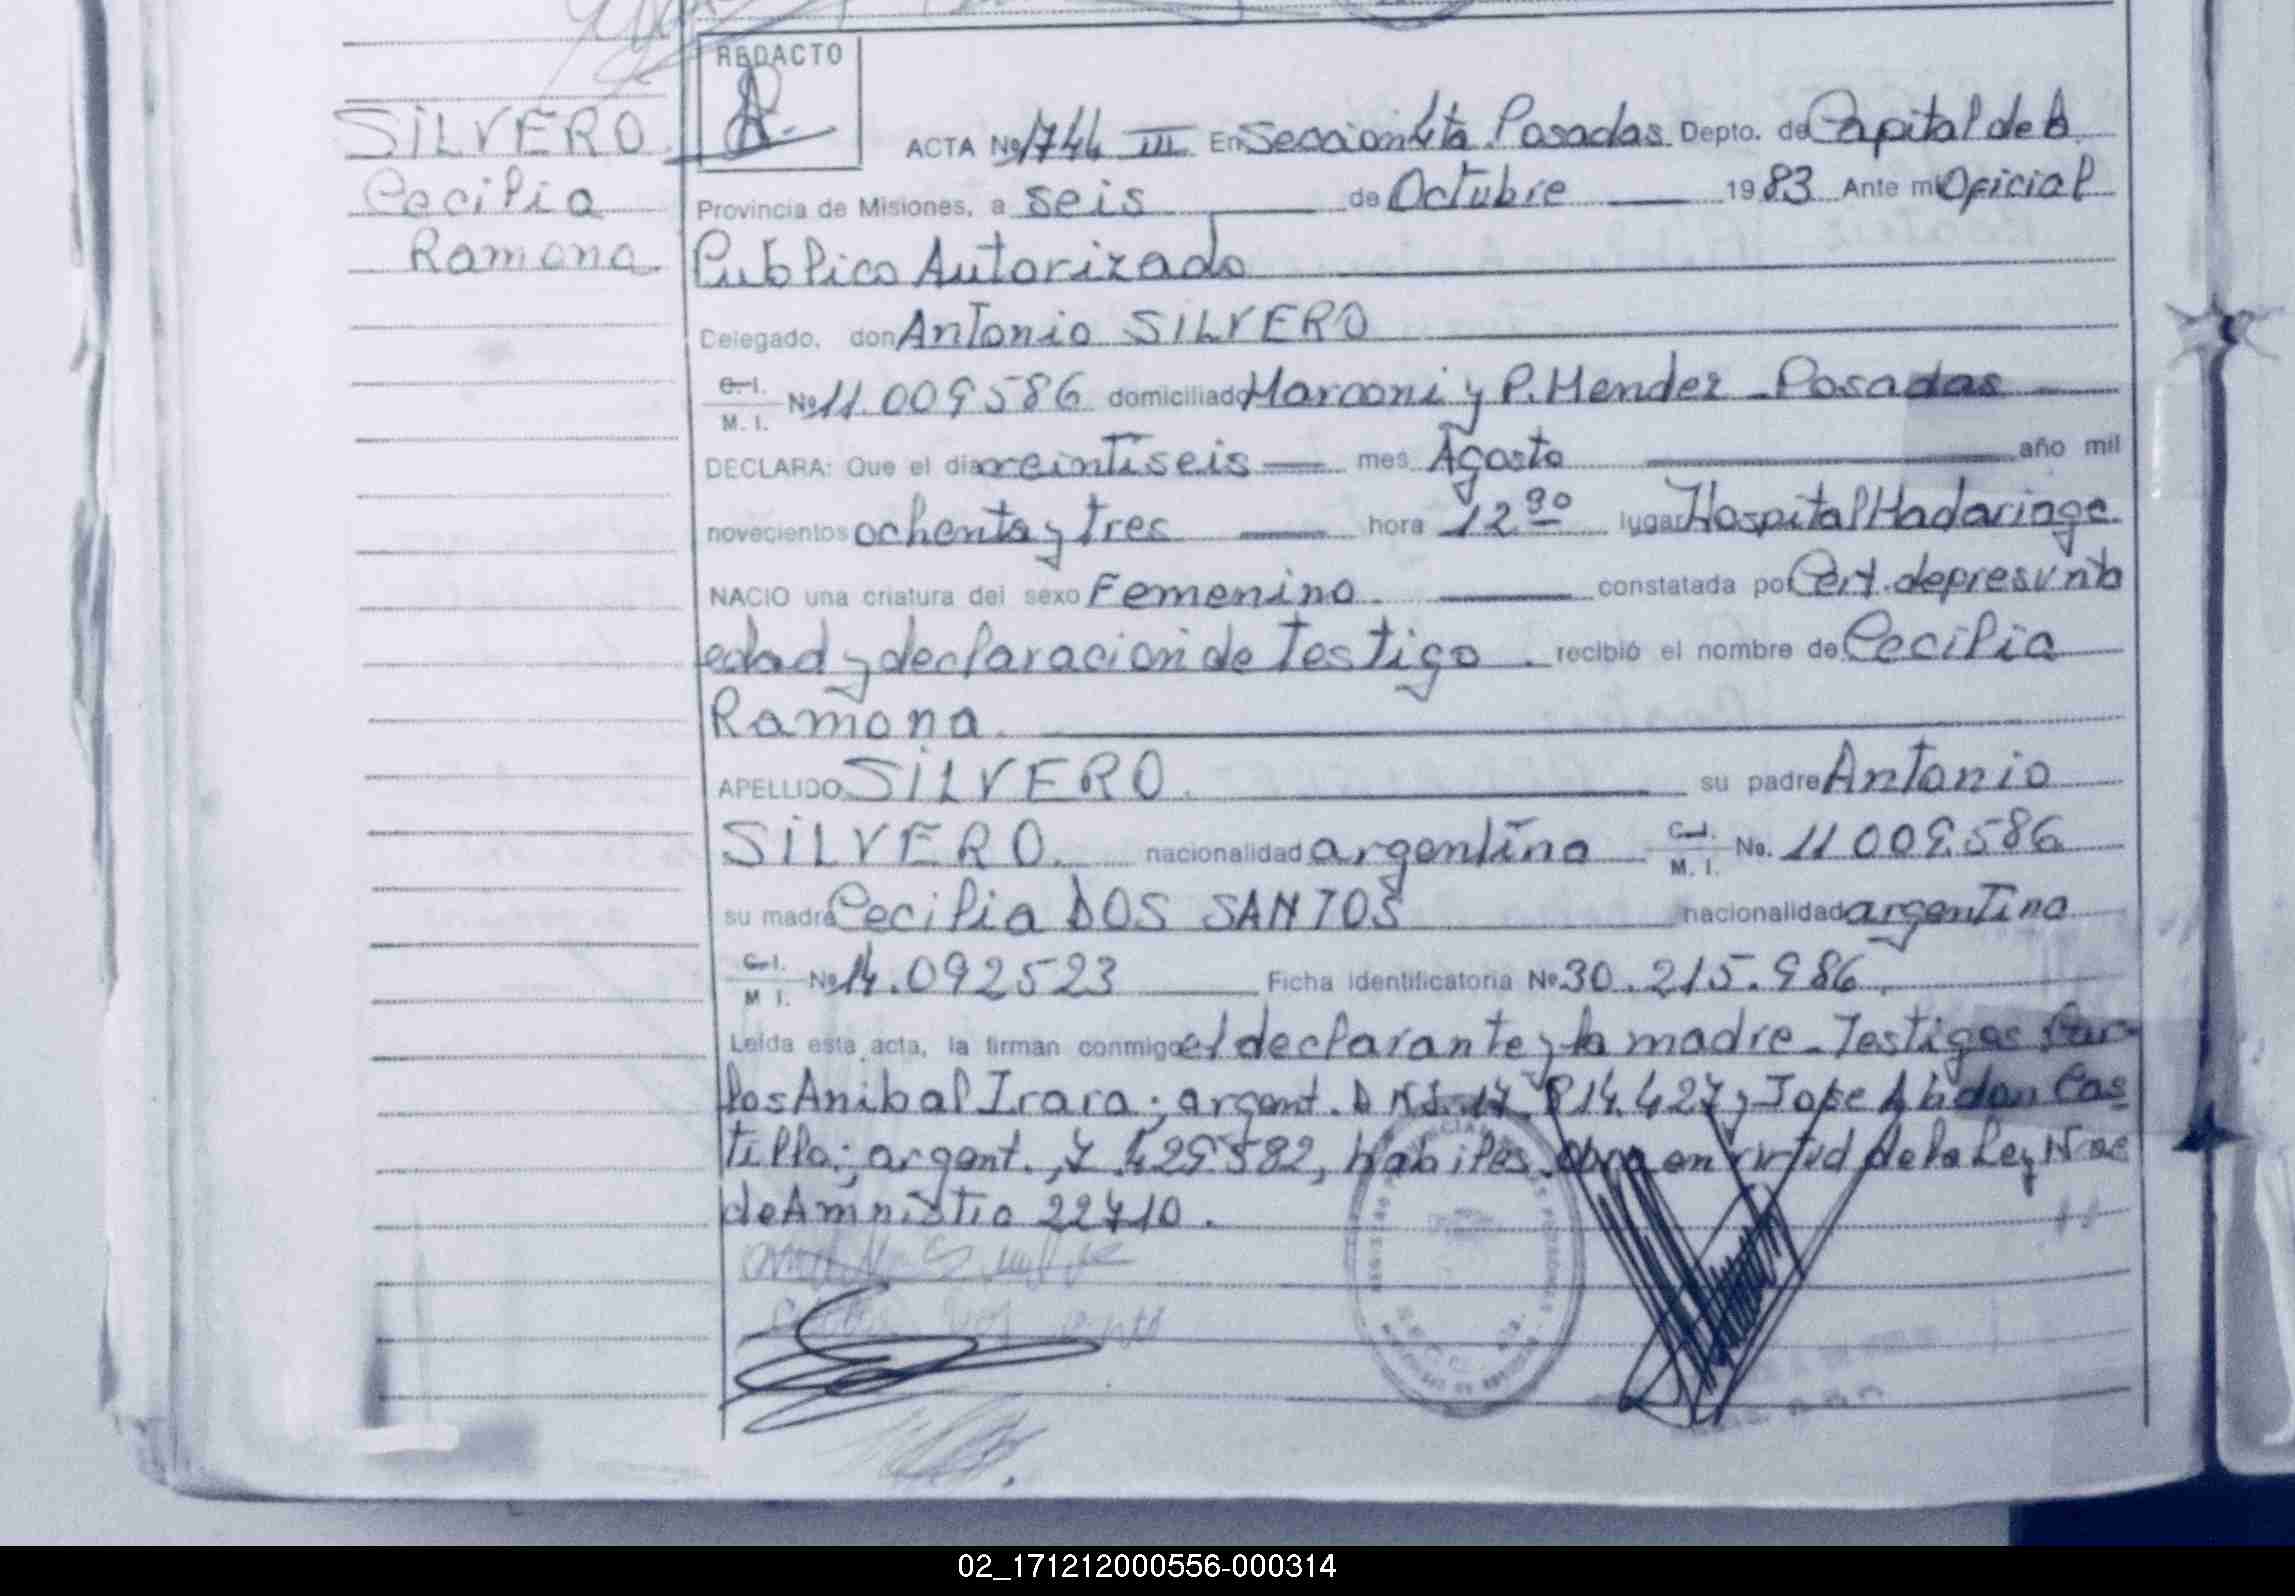 REDACTO
SILVERO
Cecilia
Ramona.
ACTA Nº 1744 III En Sección 4ta Posadas Depto. de Capital de la
Provincia de Misiones, a seis de Octubre 1983 Ante mi Oficial
Publico Autorizado
Delegado, don Antonio SILVERO
C.I. M.I. Nº 11.009586 domiciliado Marconi y P. Mendez - Posadas
DECLARA: Que el día veintiseis mes Agosto año mil
novecientos ochenta y tres hora 12 30 lugar Hospital Madariaga
NACIO una criatura del sexo Femenino constatada por Cert. de presunta
edad y declaracion de Testigo. recibió el nombre de Cecilia
Ramona.
APELLIDO SILVERO. su padre Antonio
SILVERO. nacionalidad argentino C.I. M.I. No. 11 009.586
su madre Cecilia DOS SANTOS nacionalidad argentina
C.I. M I. Nº 14.092523 Ficha identificatoria Nº 30.215.986.
Leída esta acta, la firman conmigo el declarante y la madre - Testigos Car
los Anibal Irara; argent. D N I. 17.814.427 y Jose Cas
tillo; argent., 7.429582, habiles. obra en virtud de la Ley Nac
de Amnistia 22410.
02_171212000556-000314